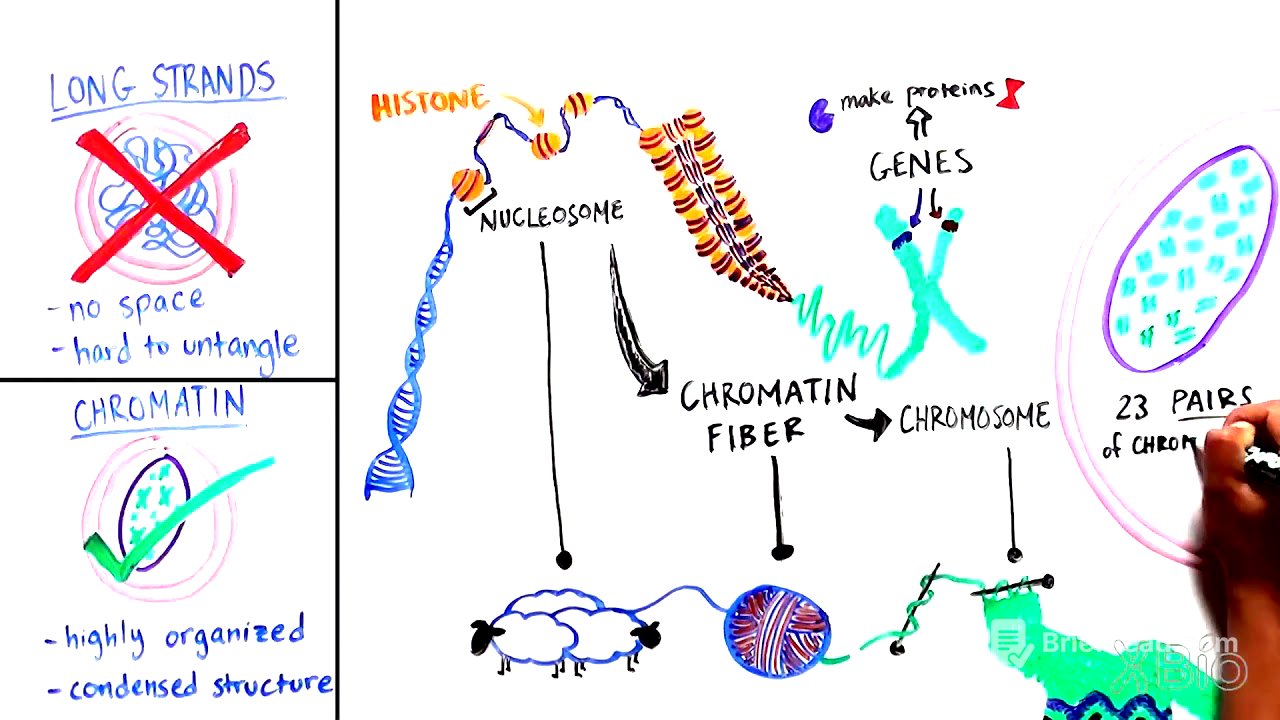 LONG STRANDS
-no space
-hard to untangle
CHROMATIN
-highly organized
-condensed structure
HISTONE
NUCLEOSOME
make proteins
GENES
CHROMATIN
FIBER
CHROMOSOME
23 PAIRS
of CHROM
XBIO